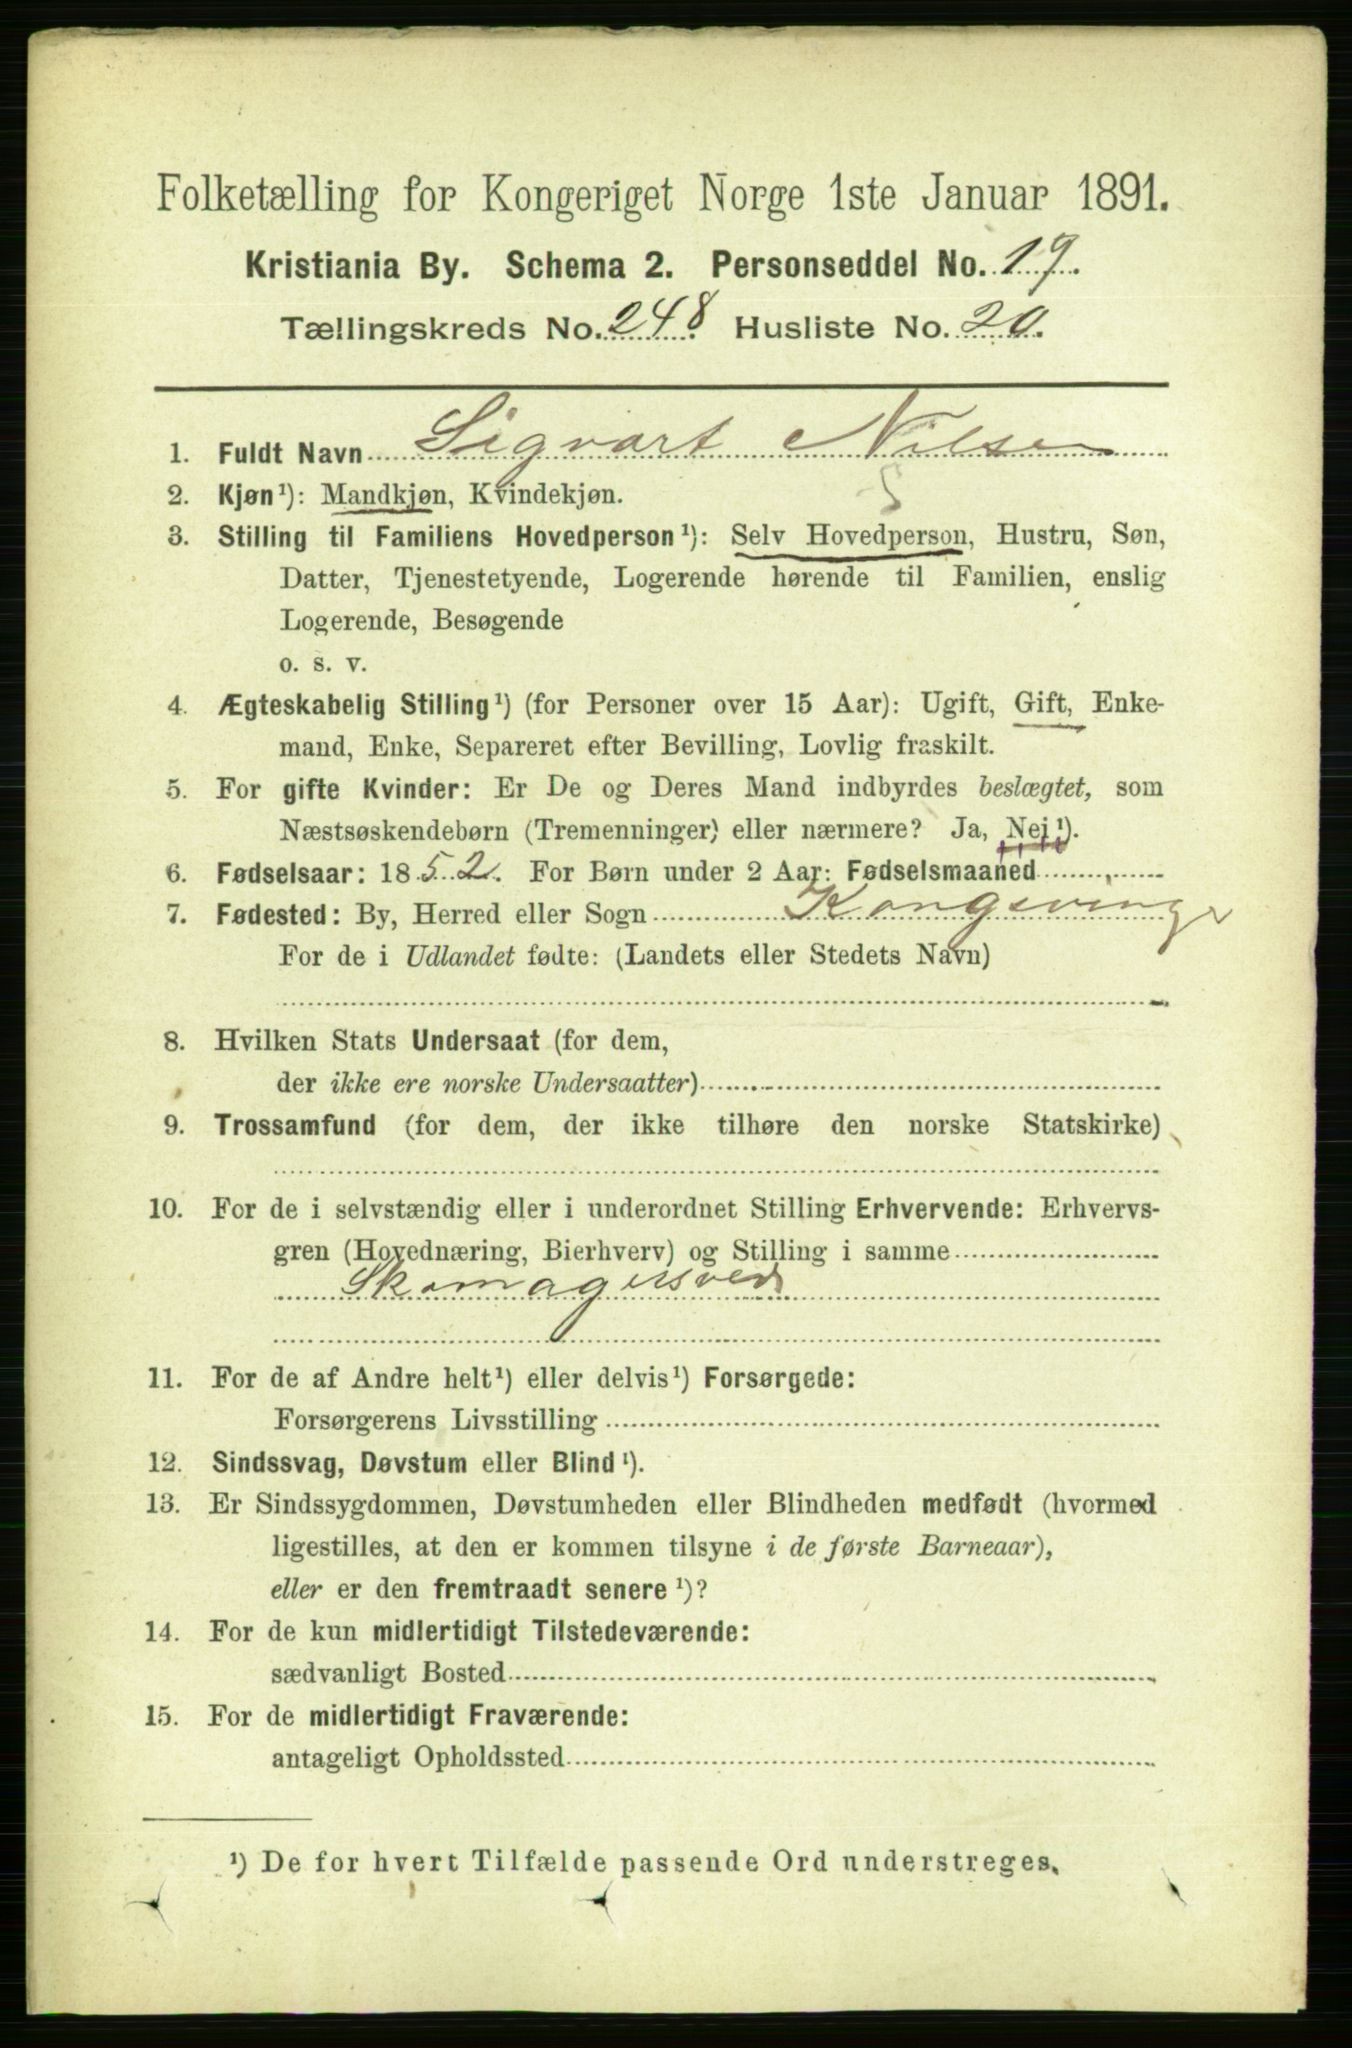 Folketælling for Kongeriget Norge 1ste Januar 1891.
Kristiania By. Schema 2. Personseddel No. 19.
Tællingskreds No. 248 Husliste No. 20.
1. Fuldt Navn Sigvart Nilsen
2. Kjøn¹): Mandkjøn, Kvindekjøn. 5
3. Stilling til Familiens Hovedperson¹): Selv Hovedperson, Hustru, Søn,
Datter, Tjenestetyende, Logerende hørende til Familien, enslig
Logerende, Besøgende
o. s. v.
4. Ægteskabelig Stilling¹) (for Personer over 15 Aar): Ugift, Gift, Enke-
mand, Enke, Separeret efter Bevilling, Lovlig fraskilt.
5. For gifte Kvinder: Er De og Deres Mand indbyrdes beslægtet, som
Næstsøskendebørn (Tremenninger) eller nærmere? Ja, Nej¹).
6. Fødselsaar: 1852. For Børn under 2 Aar: Fødselsmaaned
7. Fødested: By, Herred eller Sogn Kongsvinger
For de i Udlandet fødte: (Landets eller Stedets Navn)
8. Hvilken Stats Undersaat (for dem,
der ikke ere norske Undersaatter)
9. Trossamfund (for dem, der ikke tilhøre den norske Statskirke)
10. For de i selvstændig eller i underordnet Stilling Erhvervende: Erhvervs-
gren (Hovednæring, Bierhverv) og Stilling i samme
Skomagersved
11. For de af Andre helt¹) eller delvis¹) Forsørgede:
Forsørgerens Livsstilling
12. Sindssvag, Døvstum eller Blind¹).
13. Er Sindssygdommen, Døvstumheden eller Blindheden medfødt (hvormed
ligestilles, at den er kommen tilsyne i de første Barneaar),
eller er den fremtraadt senere¹)?
14. For de kun midlertidigt Tilstedeværende:
sædvanligt Bosted
15. For de midlertidigt Fraværende:
antageligt Opholdssted
¹) De for hvert Tilfælde passende Ord understreges.